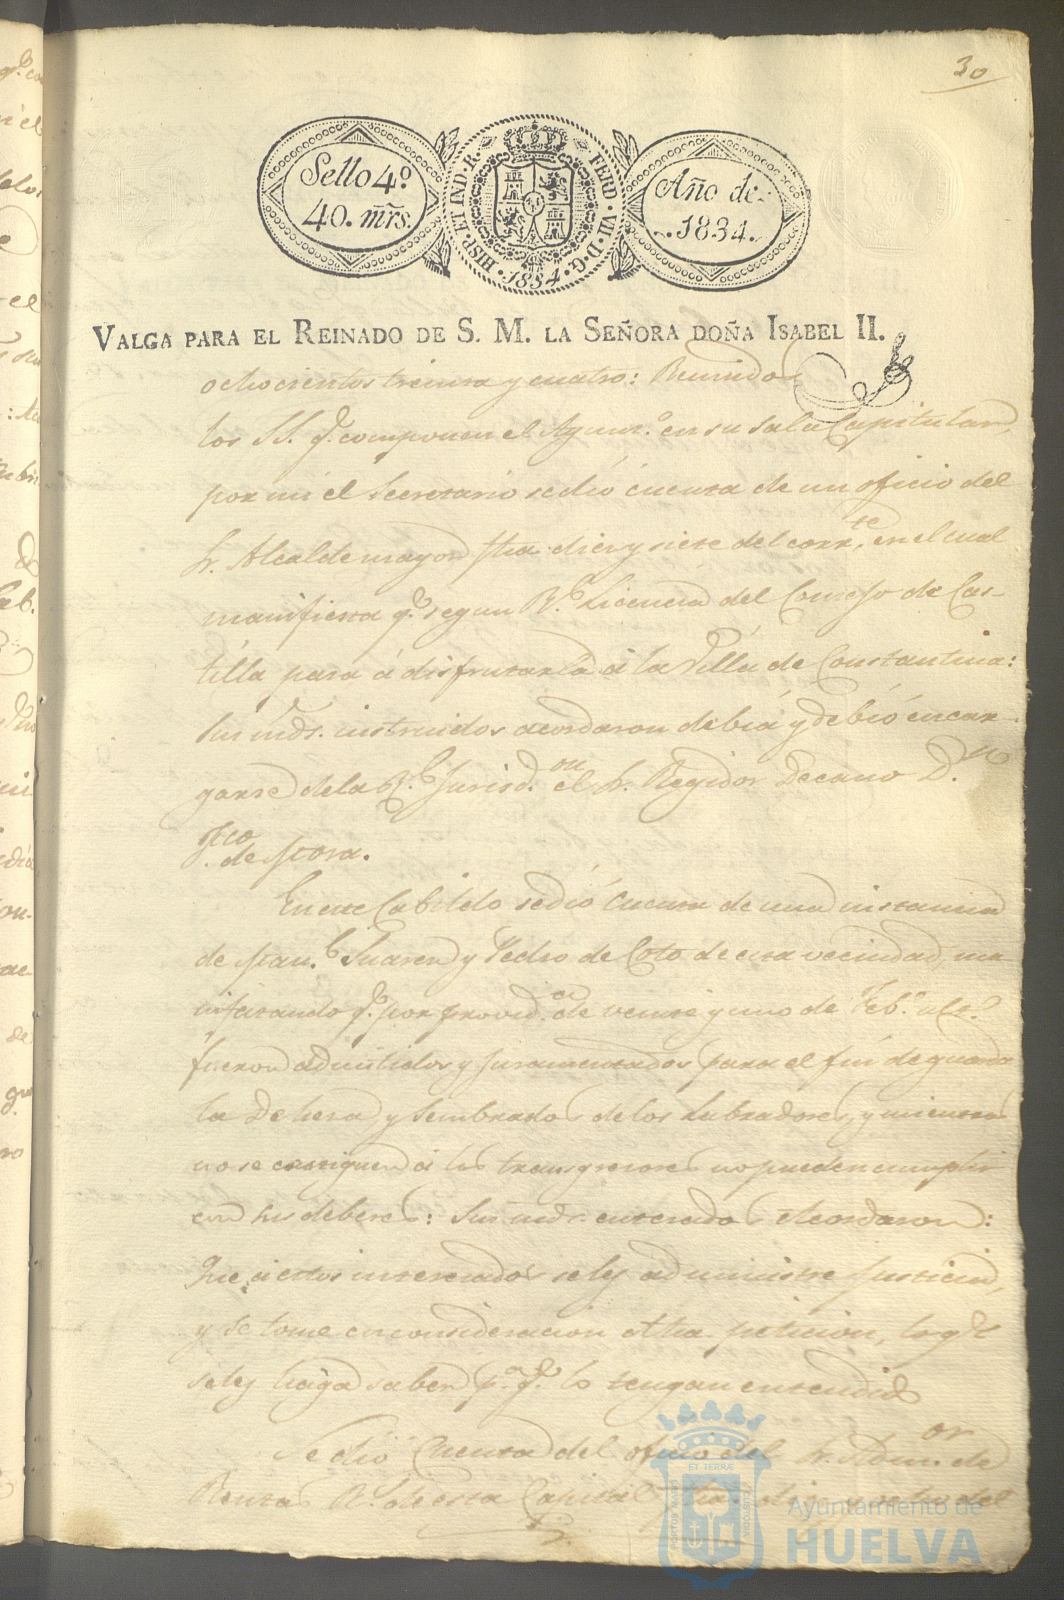 30
Sello 4º
40. mrs.
HISP. ET IND. R.
FERD. VII. D. G.
1834
Año de
1834.
VALGA PARA EL REINADO DE S. M. LA SEÑORA DOÑA ISABEL II.
ochocientos treinta y cuatro: Reunidos
los SS. q.e componen el Ayunt.o en su sala Capitular,
por mi el Secretario se dió cuenta de un oficio del
Sr. Alcalde mayor fha. diez y siete del corr.te, en el cual
manifiesta q.e segun R.l Licencia del Consejo de Cas-
tilla pasa á disfrutarla á la Villa de Constantina:
Sus mds. instruidos acordaron debia y debió encar-
garse de la R.l Jurisd.on el Sr. Regidor Decano D.n
Fco. de Mora.
En este Cabildo se dió Cuenta de una instancia
de Man.l Suarez y Pedro de Coto de esta vecindad, ma-
nifestando q.e por provid.a de veinte y uno de Feb.o ult.o
fueron admitidos y juramentados para el fin de guardar
la Dehesa y Sembrados de los Labradores, y mientras
no se castiguen á los transgresores no pueden cumplir
con sus deberes: Sus mds. enterados Acordaron:
Que á estos interesados se les administre Justicia,
y se tome en consideracion dha. peticion, lo q.e
se les haga saber p.a q.e lo tengan entendido
Se dió Cuenta del oficio del Sr. Adm.or de
Rentas R.s de esta Capital fha. diez y ocho del
Ayuntamiento de
HUELVA